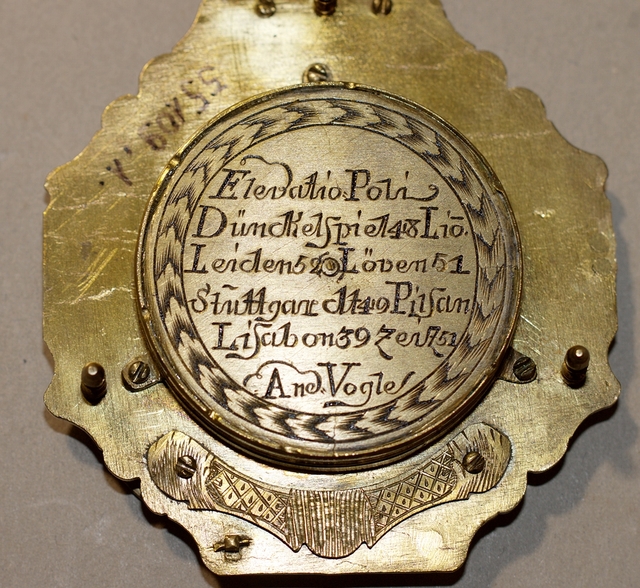 Elevatio Poli
Dünckelspiel 48 Lio.
Leiden 52 Löven 51
Stuttgardt 49 Pilsan
Lisabon 39 Zei 751
And. Vogle